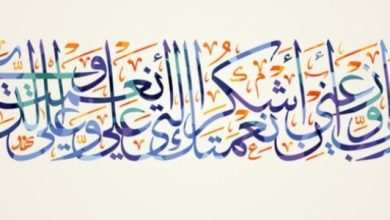 أوزعني أن أشكر نعمتك التي أنعمت علي وعلى